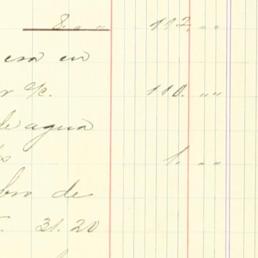 112. ""
esa en
r %. 110. ""
de agua
s 1. ""
bro de
31. 20